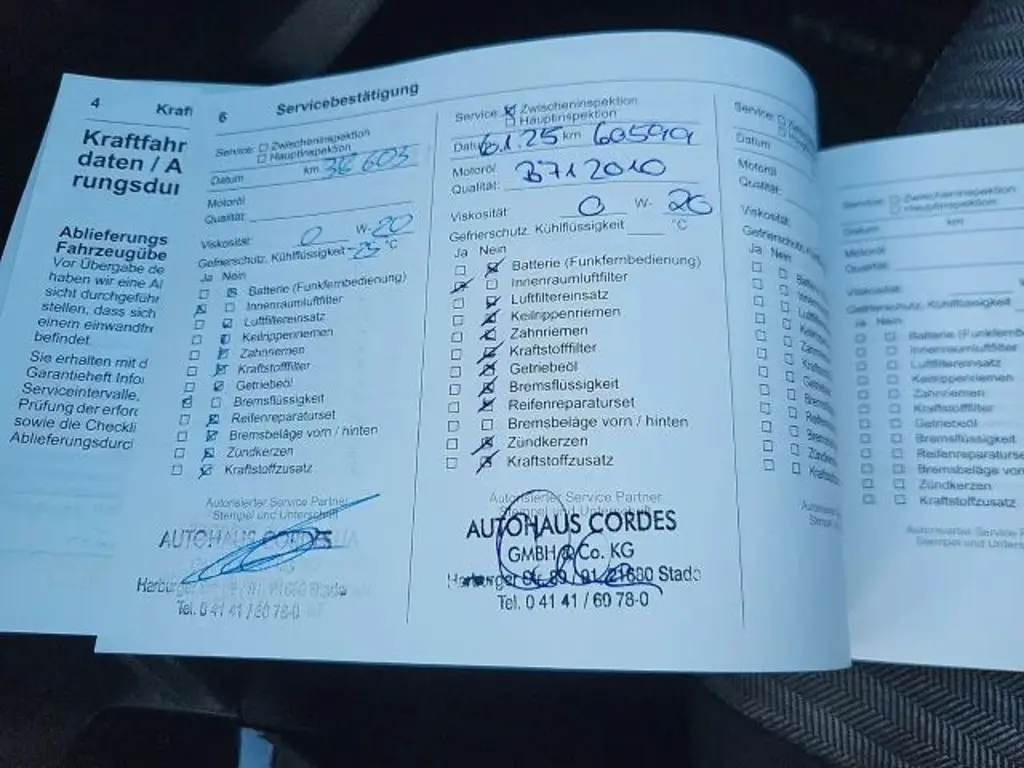 4 Kraf
Kraftfahr
daten / A
rungsdu
Ablieferungs
Fahrzeugübe
Vor Übergabe de
haben wir eine A
sicht durchgeführ
stellen, dass sich
einem einwandfr
befindet.
Sie erhalten mit d
Garantieheft Info
Serviceintervalle,
Prüfung der erfor
sowie die Checkli
Ablieferungsdurc
6 Servicebestätigung
Service: Zwischeninspektion
Hauptinspektion
Datum km 36 603
Motoröl
Qualität:
Viskosität: 0 W-20
Gefrierschutz, Kühlflüssigkeit -25 °C
Ja Nein
Batterie (Funkfernbedienung)
Innenraumluftfilter
Luftfiltereinsatz
Keilrippenriemen
Zahnriemen
Kraftstofffilter
Getriebeöl
Bremsflüssigkeit
Reifenreparaturset
Bremsbeläge vorn / hinten
Zündkerzen
Kraftstoffzusatz
Autorisierter Service Partner
Stempel und Unterschrift
AUTOHAUS CORDES
Harburger Str. 89 / 91, 21680 Stade
Tel. 0 41 41 / 60 78-0
Service: Zwischeninspektion
Hauptinspektion
Datum 6.1.25 km 60599
Motoröl
Qualität: B712010
Viskosität: 0 W- 20
Gefrierschutz, Kühlflüssigkeit °C
Ja Nein
Batterie (Funkfernbedienung)
Innenraumluftfilter
Luftfiltereinsatz
Keilrippenriemen
Zahnriemen
Kraftstofffilter
Getriebeöl
Bremsflüssigkeit
Reifenreparaturset
Bremsbeläge vorn / hinten
Zündkerzen
Kraftstoffzusatz
Autorisierter Service Partner
Stempel und Unterschrift
AUTOHAUS CORDES
GMBH & Co. KG
Harburger Str. 89 / 91, 21680 Stade
Tel. 0 41 41 / 60 78-0
Service:
Datum
Motoröl
Qualität:
Viskosität:
Gefrierschutz, K
Ja Nein
Service: Zwischeninspektion
Hauptinspektion
Datum km
Motoröl
Qualität:
Viskosität:
Gefrierschutz, Kühlflüssigkeit
Ja Nein
Batterie (Funkfernb
Innenraumluftfilter
Luftfiltereinsatz
Keilrippenriemen
Zahnriemen
Kraftstofffilter
Getriebeöl
Bremsflüssigkeit
Reifenreparaturse
Bremsbeläge vorn
Zündkerzen
Kraftstoffzusatz
Autorisierter Service
Stempel und Unters